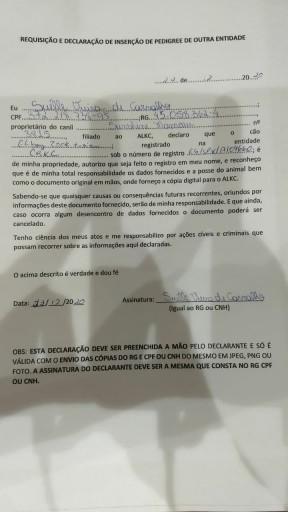 REQUISIÇÃO E DECLARAÇÃO DE INSERÇÃO DE PEDIGREE DE OUTRA ENTIDADE
de 12 20 20
Eu Suille Vieira de Carvalho ;
CPF ;RG ;
proprietário do canil nº
3825 , filiado ao ALKC, declaro que o cão
, registrado na entidade
CBKC , sob o número de registro , é
de minha propriedade, autorizo que seja feito o registro em meu nome, e reconheço
que é de minha total responsabilidade os dados fornecidos e a posse do animal bem
como o documento original em mãos, onde forneço a cópia digital para o ALKC.
Sabendo-se que quaisquer causas ou consequências futuras recorrentes, oriundos por
informações deste documento fornecido, serão de minha responsabilidade. E que ainda,
caso ocorra algum desencontro de dados fornecidos o documento poderá ser
cancelado.
Tenho ciência dos meus atos e me responsabilizo por ações cíveis e criminais que
possam recorrer sobre as informações aqui declaradas.
O acima descrito é verdade e dou fé
Data: /12/2020 Assinatura: Suille Vieira de Carvalho
(Igual ao RG ou CNH)
OBS: ESTA DECLARAÇÃO DEVE SER PREENCHIDA A MÃO PELO DECLARANTE E SÓ É
VÁLIDA COM O ENVIO DAS CÓPIAS DO RG E CPF OU CNH DO MESMO EM JPEG, PNG OU
FOTO. A ASSINATURA DO DECLARANTE DEVE SER A MESMA QUE CONSTA NO RG CPF
OU CNH.